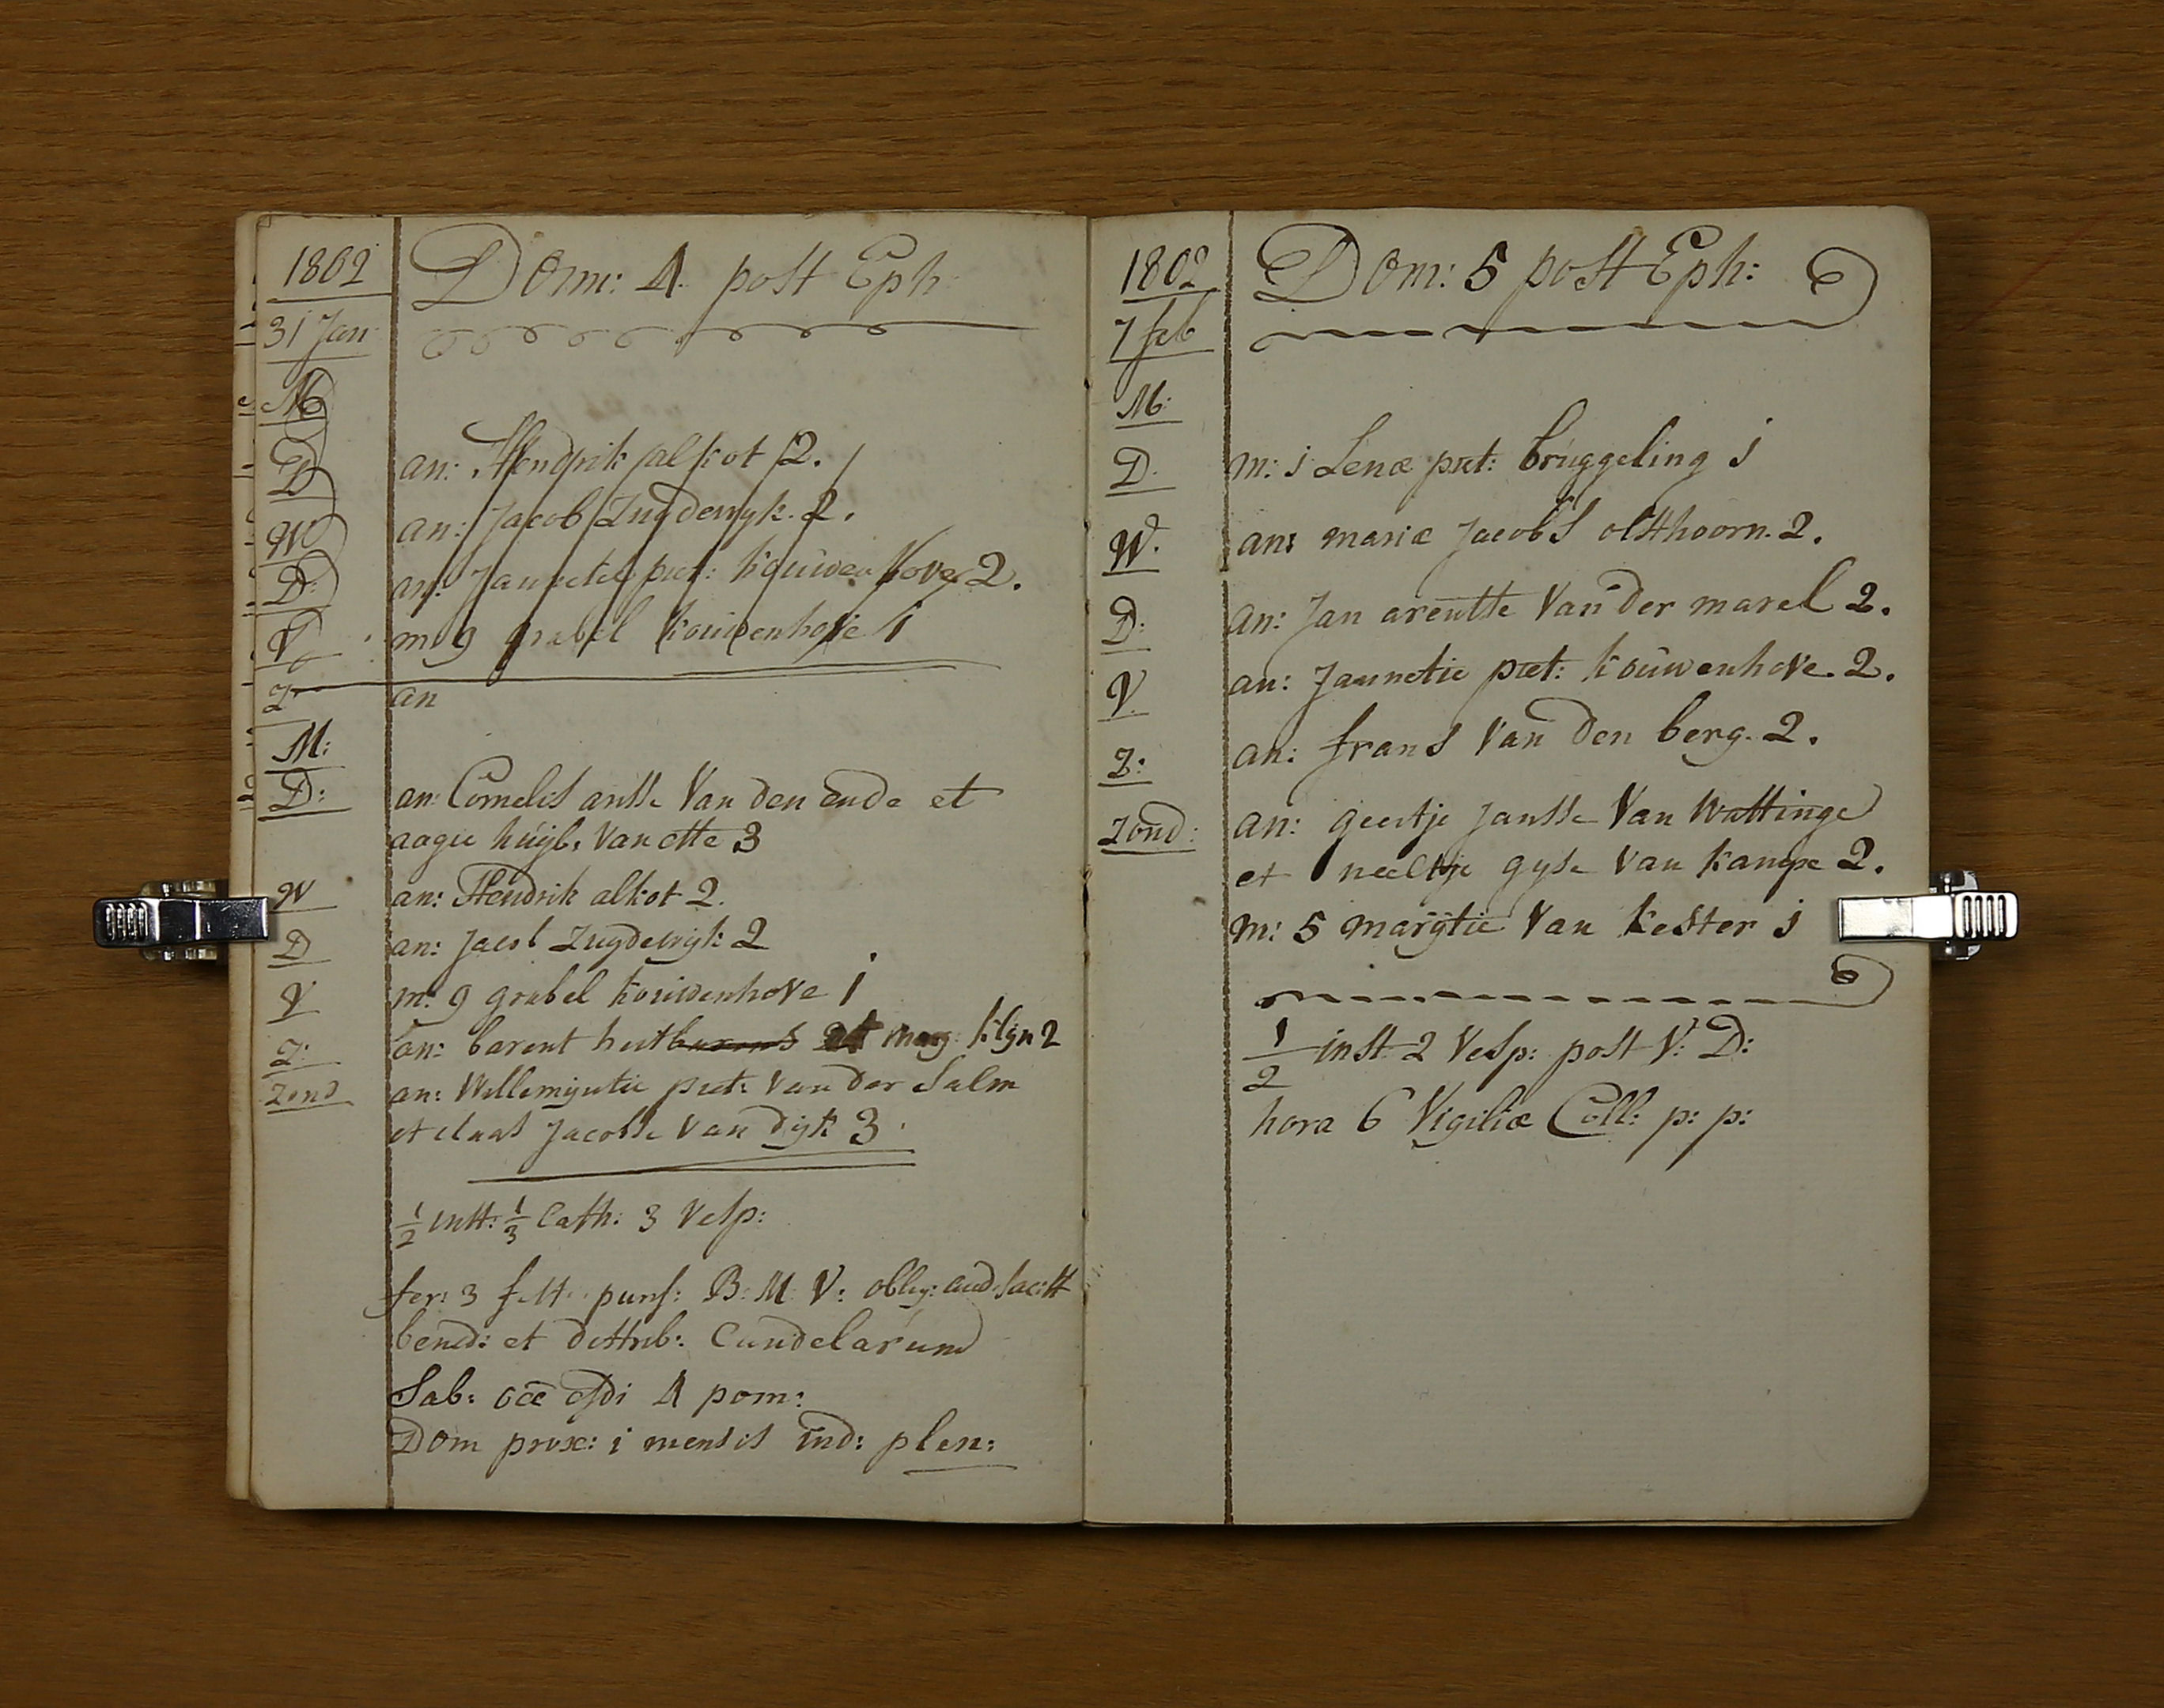 1802
Dom: 4 post Eph
31 Jan
M
D an: Hendrik alkot 2.
W an: Jacob Zuydewyk. 2.
D: an: Jannetie piet: kouwenhove 2.
V m: 9 grabel kouwenhove 1
Z an
M:
D: an: Cornelis arisse Van den Ende et
aagie huijb. Van otte 3
W an: Hendrik alkot 2.
D an: Jacob Zuydewijk 2
V m: 9 grabel kouwenhove 1
Z: an: barent et marg: klijn 2
Zond an: Willemijntie piet: Van der Salm
et claas Jacobse Van Dijk 3
1/2 inst: 1/3 Cath: 3 Vesp:
fer: 3 fest: purif: B: M: V: oblig: aud: sac: st
bened: et distrib: Candelarum
Sab: occ: cfdi 4 pom:
Dom prox: i mensis ind: plen:
1802
Dom: 5 post Eph:
7 feb
M:
D. m: j Lenæ piet: bruggeling j
W. an: mariæ Jacobs olsthoorn. 2.
D: an: Jan arentse Van der marel 2.
V. an: Jannetie piet: kouwenhove. 2.
Z: an: frans Van den berg. 2.
Zond: an: geertje Jansse Van Wattinge
et neeltje gijse Van kampe 2.
m: 5 marijtie Van kester j
1/2 inst 2 Vesp: post V: D:
hora 6 Vigiliæ Coll: p: p: